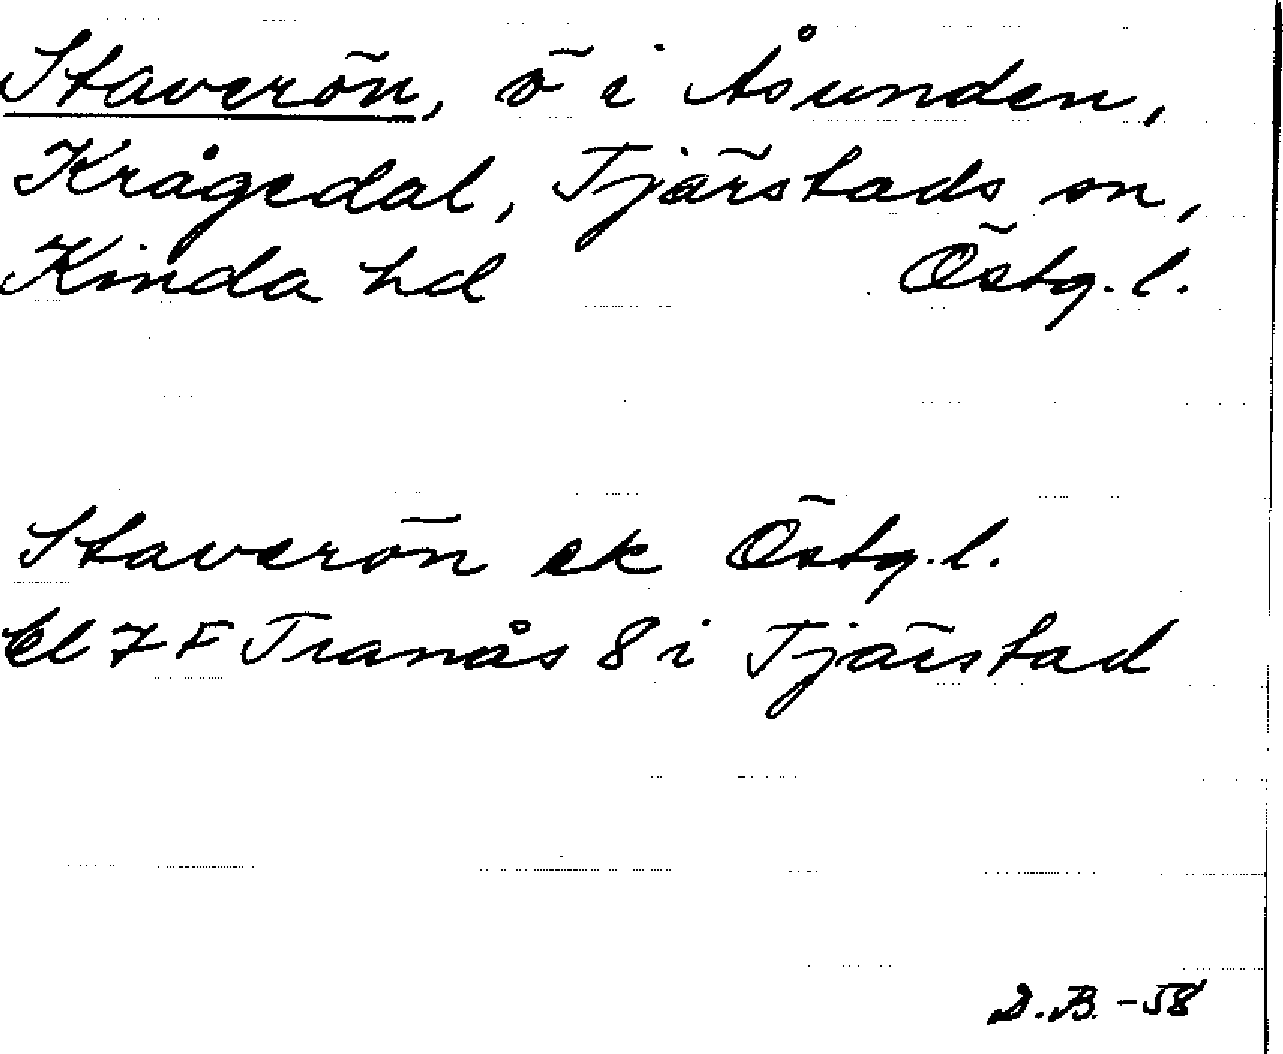 Staverön, ö i Åsunden,
Krågedal, Tjärstads sn,
Kinda hd Östg. l.
Staverön ek Östg. l.
bl 7 F Tranås 8 i Tjärstad
D.B. -58